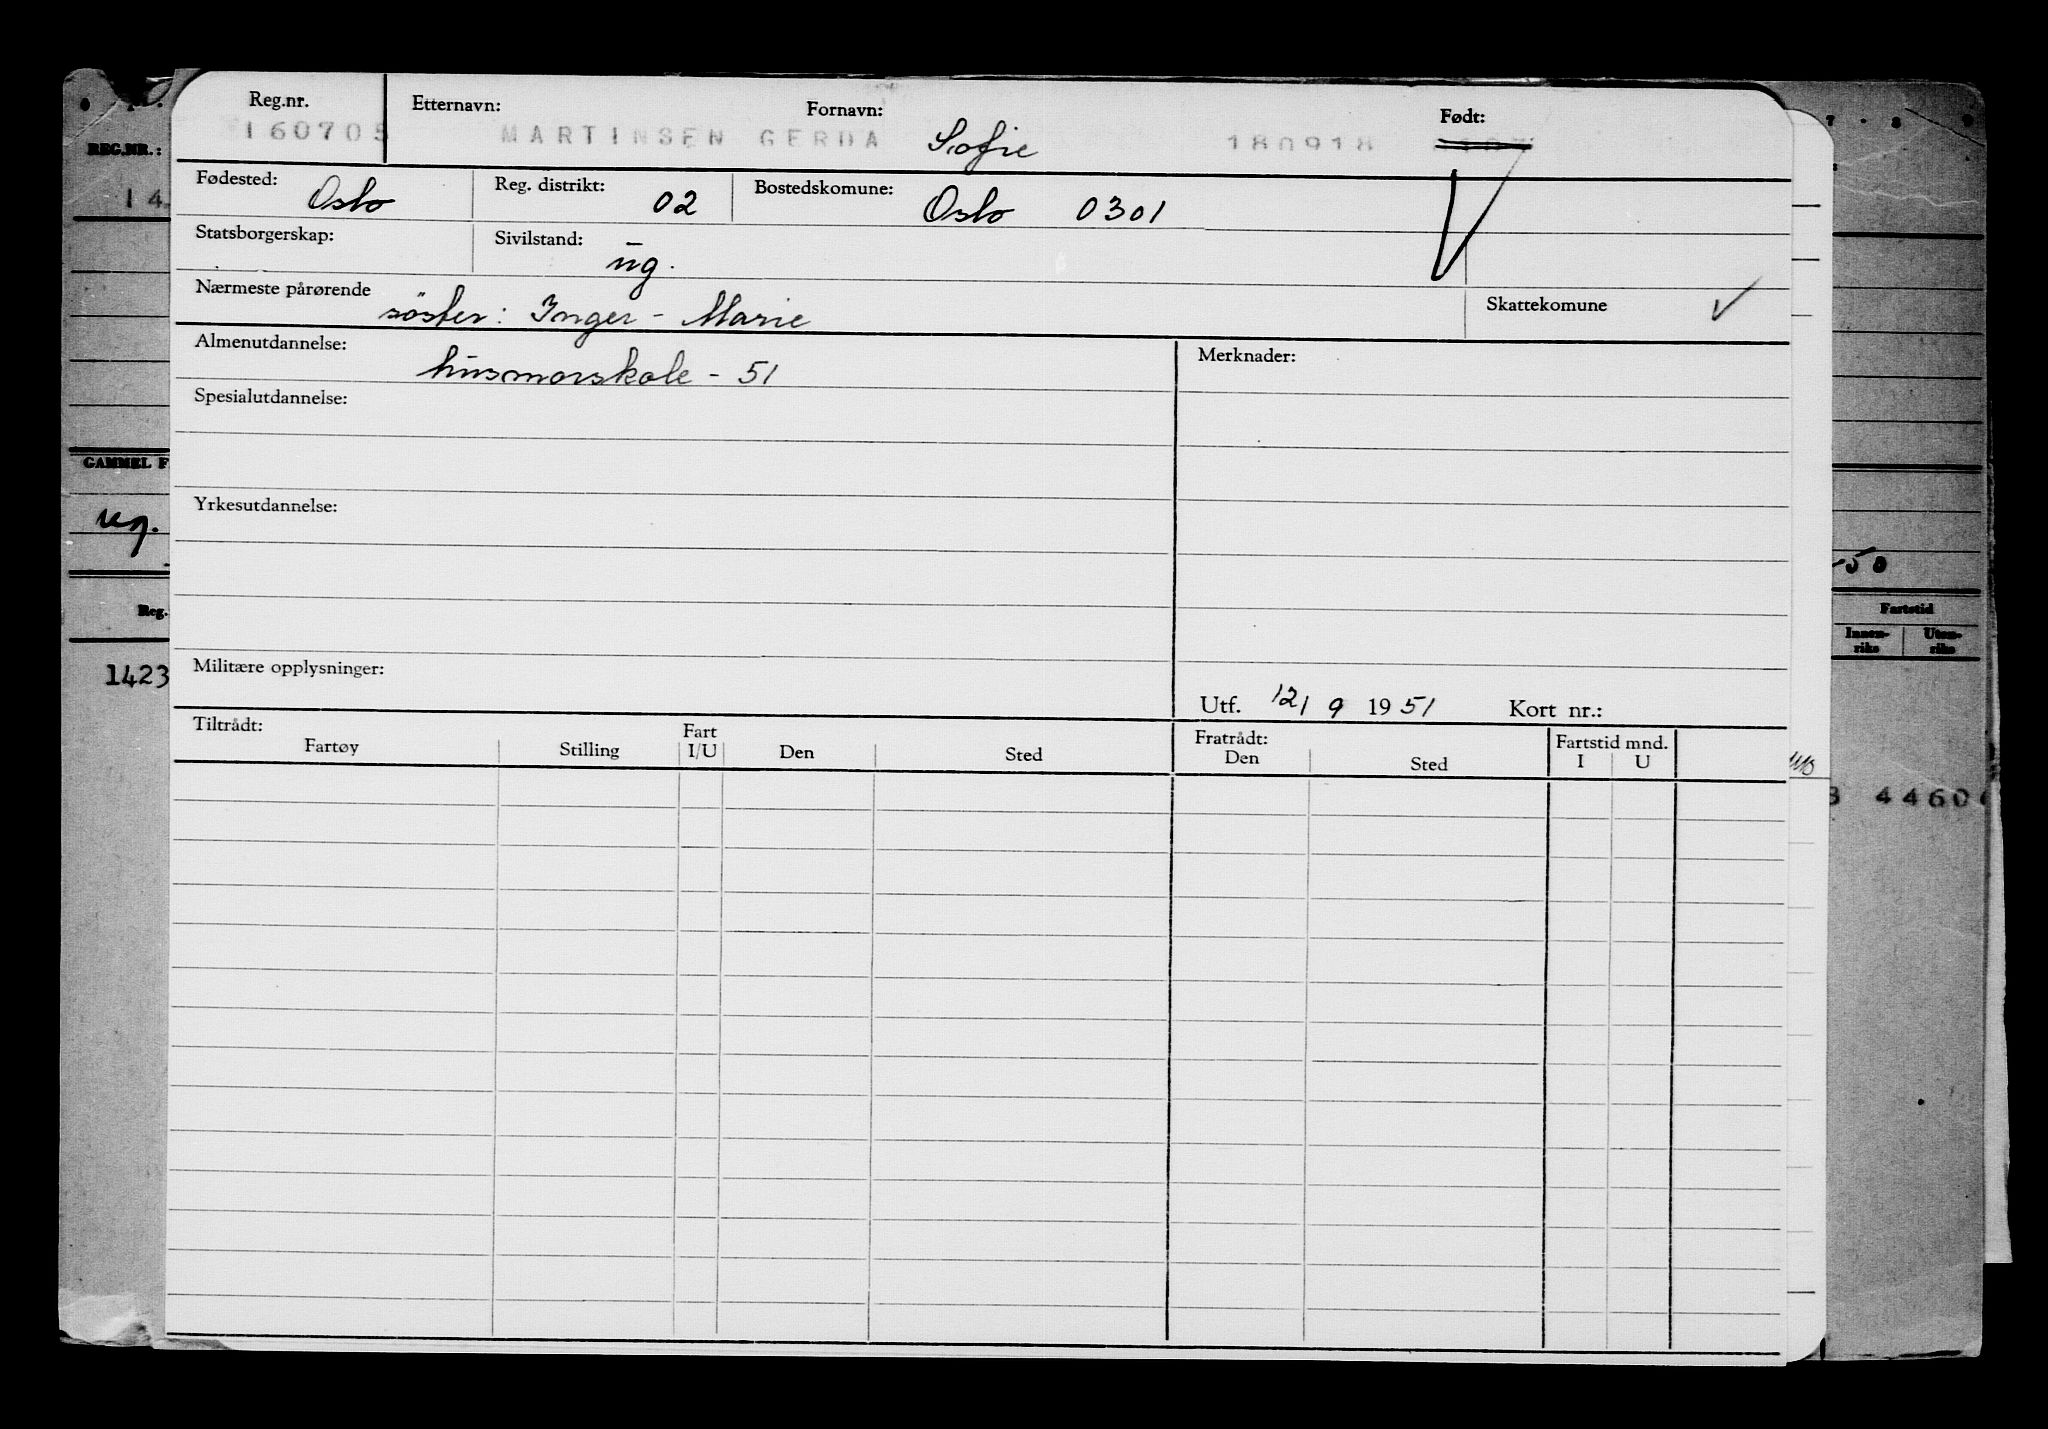 Reg.nr. Etternavn: Fornavn: Født:
160705 MARTINSEN GERDA Sofie 180918
REG.NR.:
Fødested: Oslo Reg. distrikt: 02 Bostedskomune: Oslo 0301
14
Statsborgerskap: Sivilstand: ug.
Nærmeste pårørende søster: Inger - Marie Skattekomune ✓
Almenutdannelse: husmorskole - 51 Merknader:
Spesialutdannelse:
GAMMEL F
Yrkesutdannelse:
ug.
-50
Reg. Fartstid
Innen-riks Uten-riks
Militære opplysninger:
1423
Utf. 12/9 1951 Kort nr.:
Tiltrådt: Fratrådt: Fartstid mnd.
Fartøy Stilling Fart I/U Den Sted Den Sted I U
3 4460